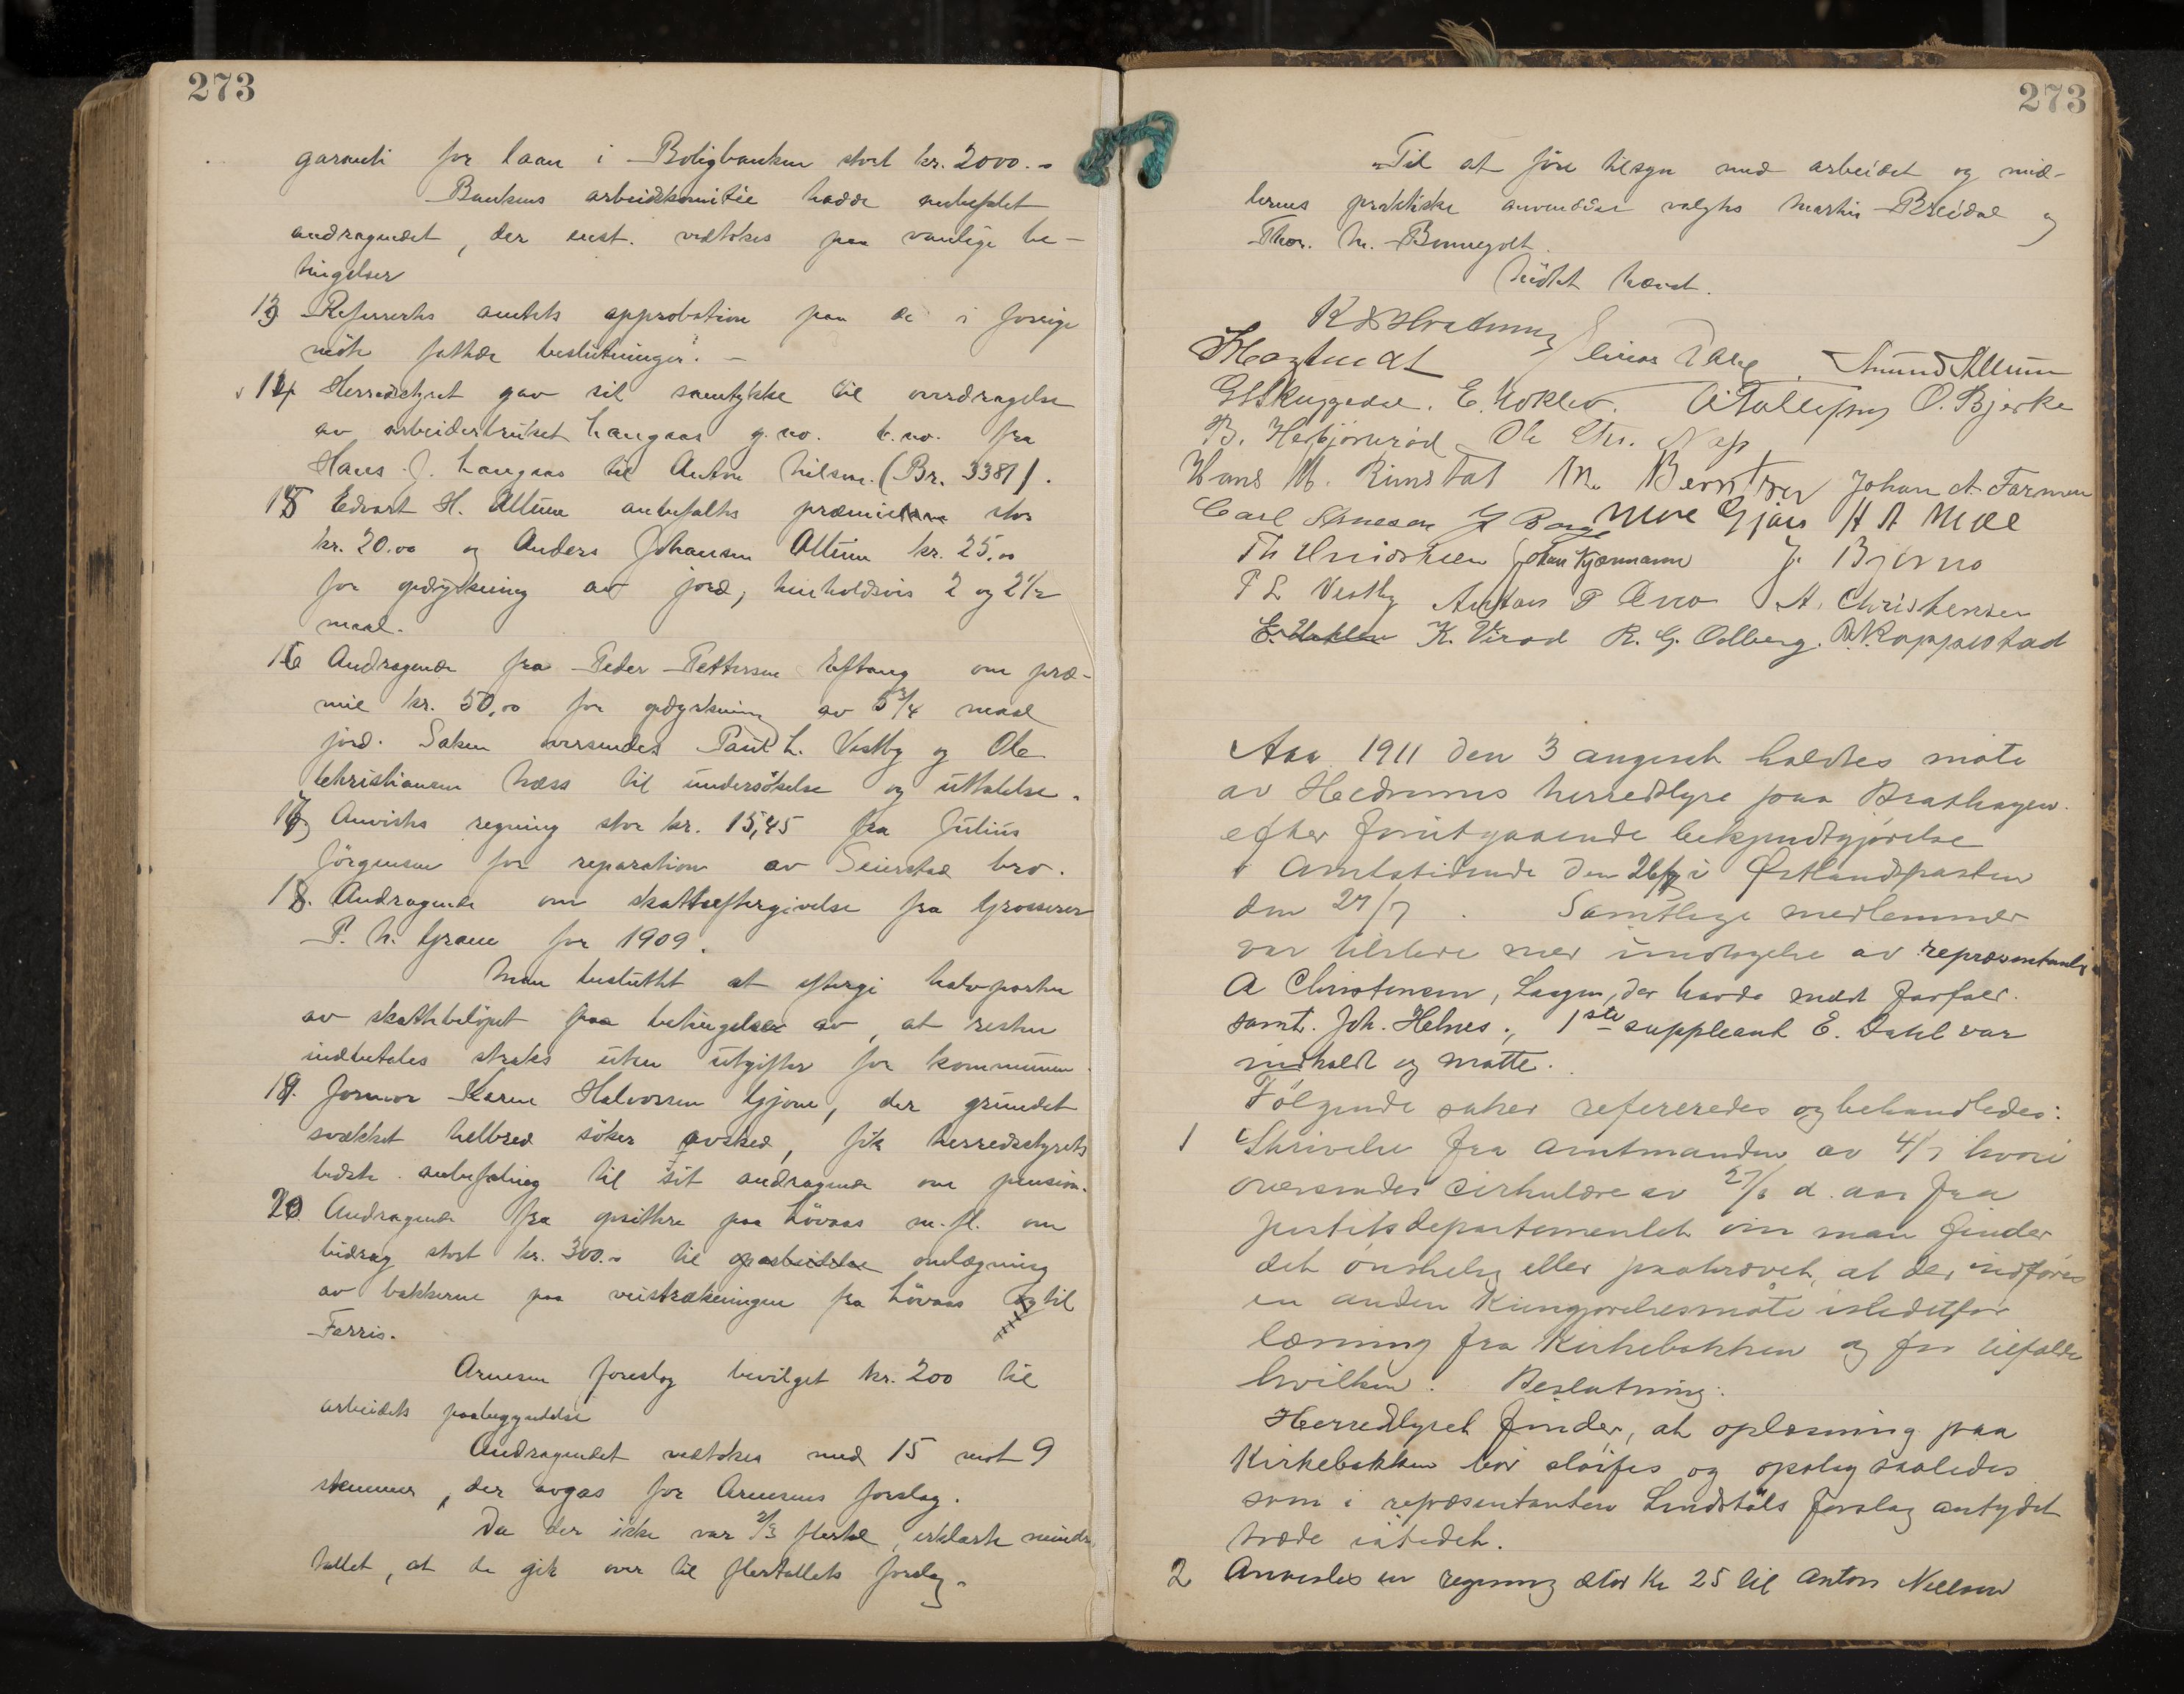 273
garanti for laan i Boligbanken stort kr. 2000.-
Bankens arbeidskomitée hadde anbefalet
andragendet, der enst. vedtokes paa vanlige be-
tingelser
13 Refertes amtets approbation paa de i forrige
møte fattede beslutninger. -
14 Herredstyret gav sit samtykke til overdragelse
av arbeiderbruket Langaas g.no. b.no. fra
Hans J. Langaas til Anton Nilsen. (Br. 3381).
15 Edvart H. Allum anbefaltes præmie stor
kr. 20.00 og Anders Johansen Allum kr. 25.00
for opdyrkning av jord, henholdsvis 2 og 2 1/2
maal.
16 Andragende fra Peder Pettersen Eftang om præ-
mie kr. 50,00 for opdyrkning av 5 3/4 maal
jord. Saken oversendes Paul L. Vestby og Ole
Christiansen Næss til undersøkelse og uttalelse.
17 Anvistes regning stor kr. 15,45 fra Julius
Jörgensen for reparation av Seierstad bro.
18. Andragende om skatteeftergivelse fra Grosserer
P. M. Grane for 1909.
Man besluttet at eftergi halvparten
av skattebeløpet paa betingelse av, at resten
indbetales straks uten utgifter for kommunen.
19. Jormor Karen Halvorsen Gjone, der grundet
svækket helbred söker avsked, fik herredsstyrets
bedste anbefaling til sit andragende om pension.
20 Andragende fra opsittere paa Lövaas m.fl. om
bidrag stort kr. 300.- til oparbeidelse omlægning
av bakkerne paa veistrækningen fra Lövaas og til
Farris.
Arnesen foreslog bevilget kr. 200 til
arbeidets paabegyndelse
Andragendet vedtokes med 15 mot 9
stemmer, der avgas for Arnesens forslag.
Da der ikke var 2/3 flertal, erklærte mindre
tallet, at de gik over til flertallets forslag.
273
Til at føre tilsyn med arbeidet og mid-
lernes praktiske anvendelse valgtes Martin Breidal og
Thor. M. Bonnegolt.
Mødet hævet.
Einar Dahl. Amund Allum
G Skuggedal. E. Uoklev. A Tollefsen O. Bjerke
B. Hebjörnröd Ole Chr. Næss
Hans M. Rimstad M. Berntsen Johan A. Farmen
Carl Arnesen J Borge More Gjøes H A Moe
Johan Kjærmann J. Bjørno
P L Vestby Anton P Ono A. Christensen
E. Uoklev K. Verod R. G. Odberg. Roppestad
Aar 1911 den 3 august holdtes møte
av Hedrums herredstyre paa Brathagen
efter forutgaaende bekjendtgjørelse
i Amtstidende den 26/7 i Østlandsposten
den 27/7. Samtlige medlemmer
var tilstede med undtagelse av repræsentant
A Christensen, Laagen, der havde meldt forfald.
samt. Joh. Helnes., 1ste suppleant E. Dahl var
indkaldt og møtte.
Følgende saker refereredes og behandledes:
1 Skrivelse fra amtmanden av 4/7 hvori
oversendes cirkulære av 27/6 d. aar fra
justitsdepartementet om man finder
det ønskelig eller paakrævet, at der indføres
en anden Kungjørelsesmåte istedetfor
læsning fra Kirkebakken og for tilfælde
hvilken. Beslutning:
Herredstyret finder, at oplæsning paa
Kirkebakken bør sløifes og opslag saaledes
som i repræsentanten Lindstøls forslag antydet
træde istedet.
2 Anvistes en regning stor Kr 25 til Anton Nielsen